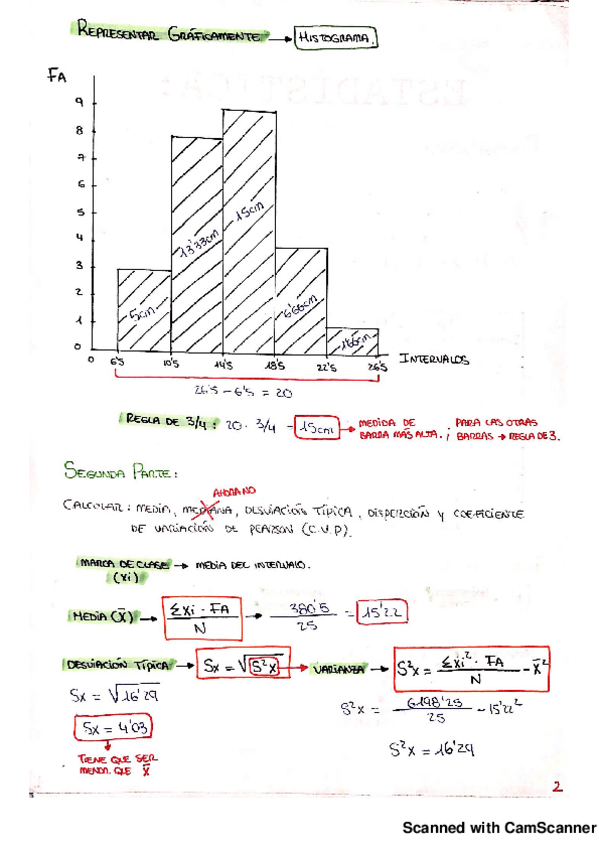 REPRESENTAR GRÁFICAMENTE → HISTOGRAMA.
FA
9
8
7
6
5
4
3
2
1
0
5cm
13'33cm
15cm
6'66cm
1'66cm
0 6'5 10'5 14'5 18'5 22'5 26'5 INTERVALOS
26'5 - 6'5 = 20
REGLA DE 3/4 : 20 · 3/4 = 15cm → MEDIDA DE BARRA MÁS ALTA. ; PARA LAS OTRAS BARRAS → REGLA DE 3.
SEGUNDA PARTE :
AHORA NO
CALCULAR : MEDIA, MEDIANA, DESVIACIÓN TÍPICA, DISPERCIÓN Y COEFICIENTE
DE VARIACIÓN DE PEARSON (C.V.P).
MARCA DE CLASE → MEDIA DEL INTERVALO.
(xi)
MEDIA (X̄) → Σxi · FA / N → 380'5 / 25 = 15'22
DESVIACIÓN TÍPICA → Sx = √S²x → VARIANZA → S²x = Σxi² · FA / N - x̄²
Sx = √16'29
S²x = 6198'25 / 25 - 15'22²
Sx = 4'03
S²x = 16'29
TIENE QUE SER
MENOR QUE X̄
2
Scanned with CamScanner